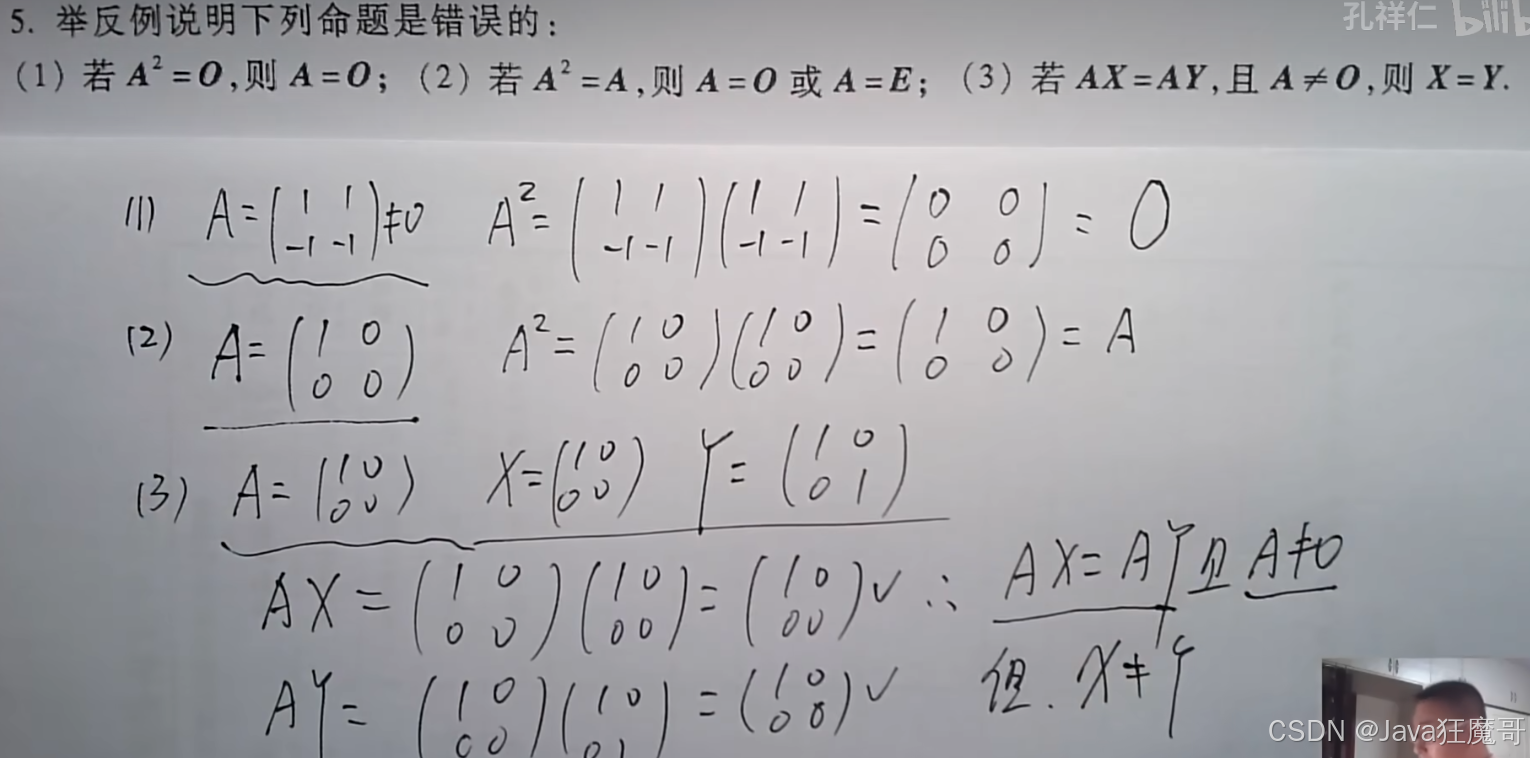 5. 举反例说明下列命题是错误的:
孔祥仁 bilib
(1) 若 A²=O,则 A=O; (2) 若 A²=A,则 A=O 或 A=E; (3) 若 AX=AY,且 A≠O,则 X=Y.
(1) A=(1 1 -1 -1)≠0 A²=(1 1 -1 -1)(1 1 -1 -1)=(0 0 0 0)=O
(2) A=(1 0 0 0) A²=(1 0 0 0)(1 0 0 0)=(1 0 0 0)=A
(3) A=(1 0 0 0) X=(1 0 0 0) Y=(1 0 0 1)
AX=(1 0 0 0)(1 0 0 0)=(1 0 0 0)✓ ∴ AX=AY且A≠0
AY=(1 0 0 0)(1 0 0 1)=(1 0 0 0)✓ 但. X≠Y
CSDN @Java狂魔哥